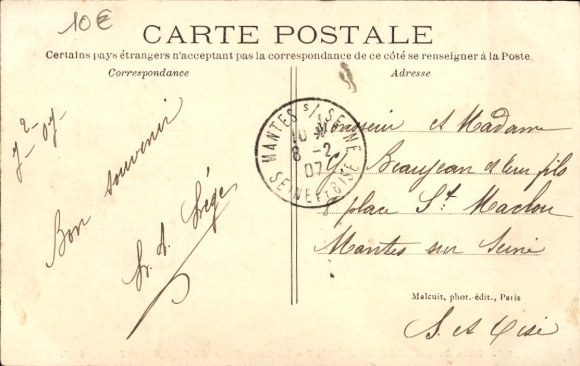 10€
CARTE POSTALE
Certains pays étrangers n'acceptant pas la correspondance de ce côté se renseigner à la Poste
Correspondance
Adresse
7-2-07
Bon souvenir
MANTES S/ SEINE
8 -2
07
SEINE ET OISE
Monsieur et Madame
Beaujean et leur fils
place St. Maclou
Mantes sur Seine
Malcuit, phot.-édit., Paris
S. et Oise